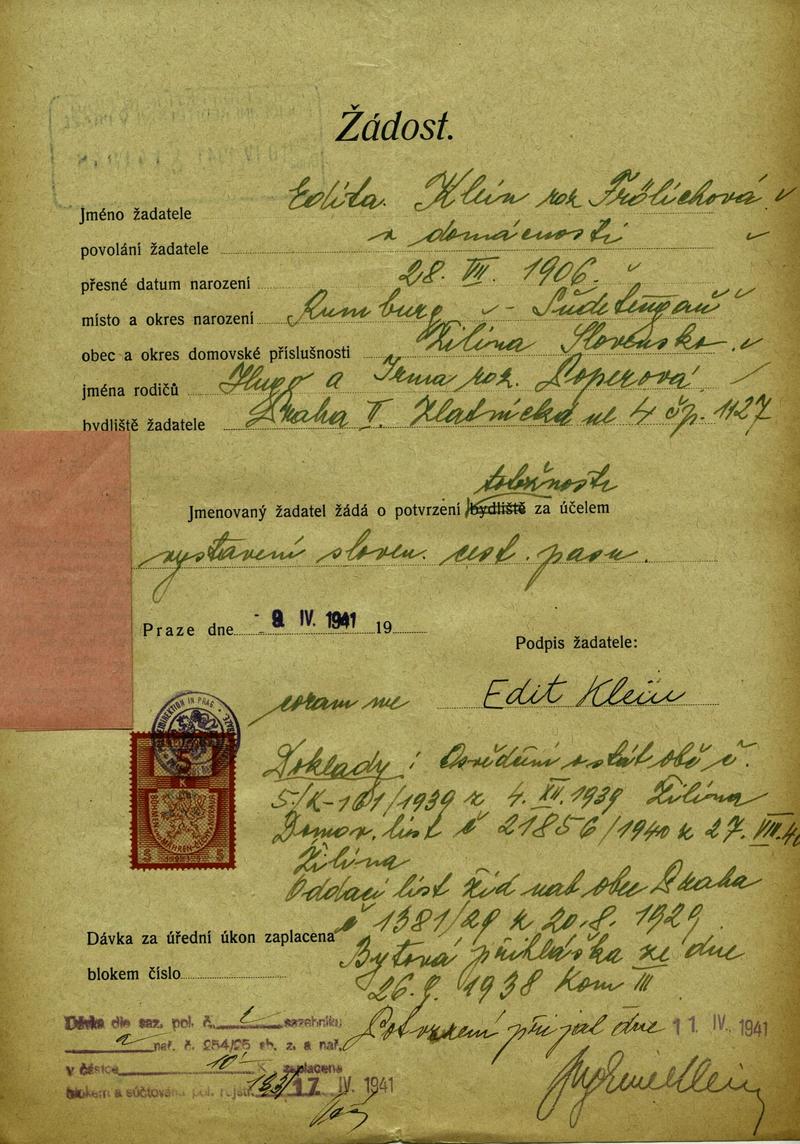 Žádost.
Jméno žadatele Edita Klein roz Fröhlichová
povolání žadatele v domácnosti
přesné datum narození 28. VII. 1906.
místo a okres narození Rumburg - Sudetengau
obec a okres domovské příslušnosti Žilina Slovensko
jména rodičů Hugo a Irma roz.
bydliště žadatele Praha II. Zlatnická ul 4 čp. 1127
totožnosti
Jmenovaný žadatel žádá o potvrzení bydliště za účelem
vystavení sloven. cest. pasu.
Praze dne - 9 IV. 1941 19
Podpis žadatele:
coram me Edit Klein
DIREKTION IN PRAG
5
MÄHREN
5 5
Doklady: Osvědčení o stát obč č.
5/K-181/1939 z 4. XII. 1939 Žilina
Domov. list č 21856/1940 z 27. VIII. 40
Žilina
Oddací list žid nab obce Praha
č 1381/29 z 20.8. 1929
Dávka za úřední úkon zaplacena
Bytová přihláška ze dne
blokem číslo
26.9. 1938 Kom III
Dávka dle saz. pol. č. 1 sazebníku
nař. č. 254/25 sb. z. a nař.
Potvrzení přijal dne 11 IV. 1941
v částce 10 K zaplacena
blokem a súčtována pol. rejstř. 17 IV. 1941
Klein